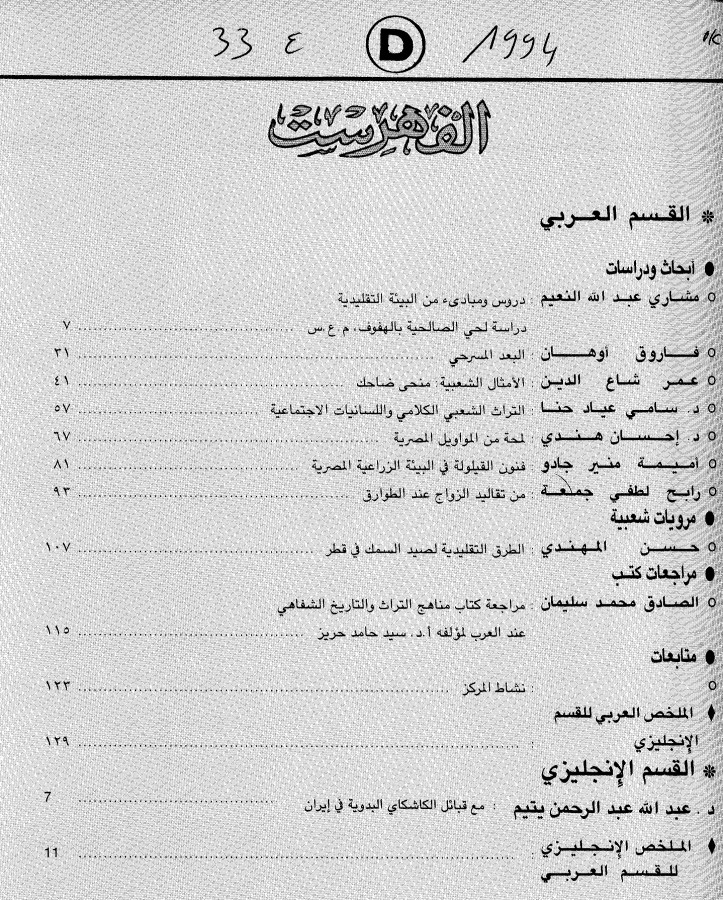 33 ع D 1994
الفهرست
❊ القسم العربي
● أبحاث ودراسات
○ مشاري عبد الله النعيم : دروس ومبادىء من البيئة التقليدية
دراسة لحي الصالحية بالهفوف، م.ع.س ........ ٧
○ فاروق أوهان : البعد المسرحي ........ ٣١
○ عمر شاع الدين : الأمثال الشعبية: منحى ضاحك ........ ٤١
○ د. سامي عياد حنا : التراث الشعبي الكلامي واللسانيات الاجتماعية ........ ٥٧
○ د. إحسان هندي : لمحة من المواويل المصرية ........ ٦٧
○ أميمة منير جادو : فنون القيلولة في البيئة الزراعية المصرية ........ ٨١
○ رابح لطفي جمعة : من تقاليد الزواج عند الطوارق ........ ٩٣
● مرويات شعبية
○ حسن المهندي : الطرق التقليدية لصيد السمك في قطر ........ ١٠٧
● مراجعات كتب
○ الصادق محمد سليمان : مراجعة كتاب مناهج التراث والتاريخ الشفاهي
عند العرب لمؤلفه أ.د. سيد حامد حريز ........ ١١٥
● متابعات
○ : نشاط المركز ........ ١٢٣
♦ الملخص العربي للقسم
الإنجليزي : ........ ١٢٩
❊ القسم الإنجليزي
د. عبد الله عبد الرحمن يتيم : مع قبائل الكاشكاي البدوية في إيران ........ 7
♦ الملخص الإنجليزي
للقسم العربي ........ 11